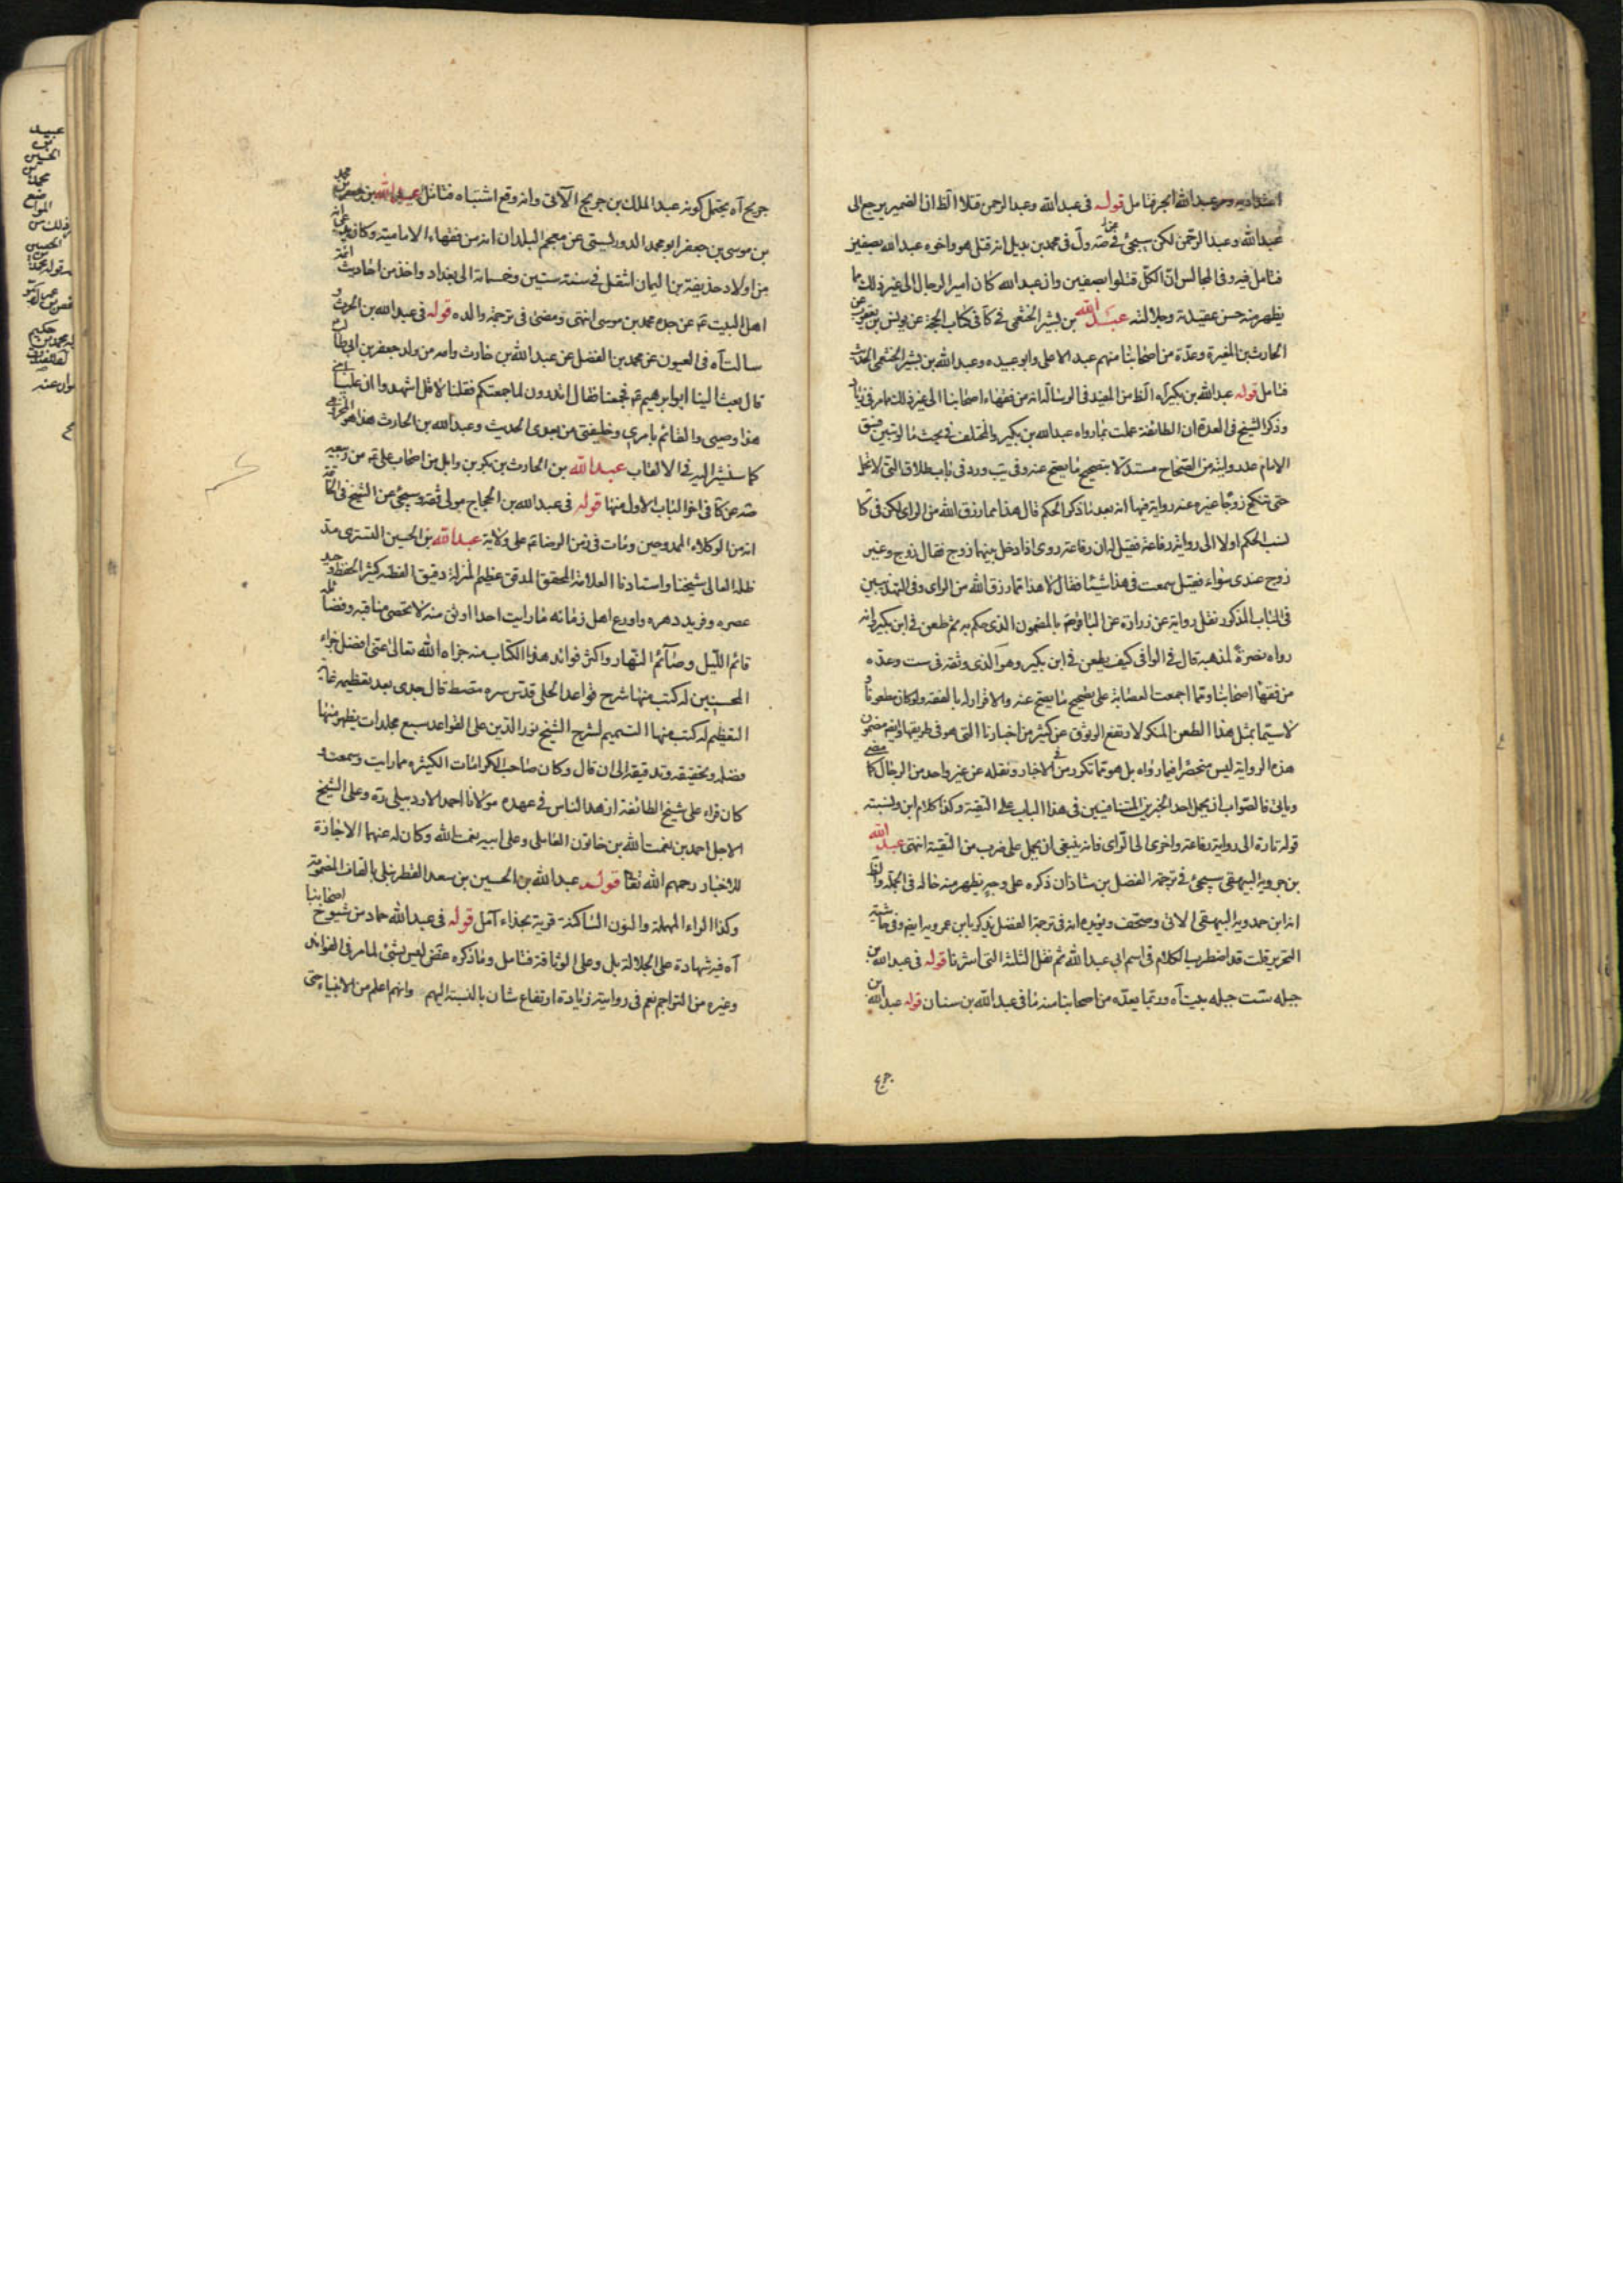 قوله فى عبدالله وعبدالرحمن قتلا اه الظ ان الضمير يرجع الى
عبدالله وعبدالرحمن لكن سيجئ فى صه ول فى محمد بن بديل انه قتل هو واخوه عبدالله بصفين
فتامل فيه وفى المجالس ان الكل قتلوا بصفين وان عبدالله كان امير الرجال الى غير ذلك مما
يظهر منه حسن عقيدته وجلالته عبدالله بن بشير الخثعمى فى كا فى كتاب الحجة عن يونس بن يعقوب عن
الحارث بن المغيرة وعدة من اصحابنا منهم عبدالاعلى وابو عبيده وعبدالله بن بشير الخثعمى الحديث
فتامل قوله عبدالله بن بكير آه الظ من المفيد فى الرسالة انه من فقهاء اصحابنا الى غير ذلك مما مر فى زياد
وذكر الشيخ فى العدة ان الطائفة عملت بما رواه عبدالله بن بكير والمختلف فى بحث ما لو تبين فسق
الامام عد روايته من الصحاح مستدلا بتصحيح ما يصح عنه وفى يب ورد فى باب طلاق التى لا تحل
حتى تنكح زوجا غيره عنه رواية فيها انه بعد ما ذكر الحكم قال هذا مما رزق الله من الراى لكن فى كا
نسب الحكم اولا الى رواية رفاعة فقيل له ان رفاعة روى اذا دخل بينهما زوج فقال زوج وغير
زوج عندى سواء فقيل سمعت فى هذا شيئا فقال لا هذا مما رزق الله من الراى وفى التهذيبين
فى الباب المذكور نقل رواية عن زرارة عن الباقر ع بالمضمون الذى حكم به ثم طعن فى ابن بكير انه
رواه نصرة لمذهبه قال فى الوافى كيف يطعن فى ابن بكير وهو الذى وثقه فى ست وعده
من فقهاء اصحابنا وممن اجمعت العصابة على تصحيح ما يصح عنه والاقرار له بالفقه ولو كان مطعونا
لا سيما بمثل هذا الطعن المنكر لارتفع الوثوق عن كثير من اخبارنا التى هو فى طريقها وايضا مضمون
هذه الرواية ليس منحصرا فيما رواه بل هو مما تكرر فى الاخبار ونقله عن غير واحد من الرجال كما مضى
وياتى فالصواب ان يحمل احد الخبرين المتنافيين فى هذا الباب على التقية وكذا كلام ابن ونسبته
قوله تارة الى رواية رفاعة واخرى الى الراى فانه ينبغى ان يحمل على ضرب من التقية انتهى عبدالله
بن حمويه البيهقى سيجئ فى ترجمة الفضل بن شاذان ذكره على وجه يظهر منه حاله فى الجملة والظ
انه ابن حمدويه البيهقى الاتى وصحف ويؤيده انه فى ترجمة الفضل يذكر بابن عمرويه ايضا وفى حاشية
التحرير قلت قد اضطرب الكلام فى اسم ابى عبدالله ثم نقل الثلثة التى اشرنا قوله فى عبدالله بن
جبله ستت جبله بيت آه وربما يعده من اصحابنا منه ما فى عبدالله بن سنان قوله عبدالله بن
جريح آه يحتمل كونه عبدالملك بن جريج الآتى وانه وقع اشتباه فتامل عبدالله بن جعفر بن محمد
بن موسى بن جعفر ابو محمد الدوريستى عن معجم البلدان انه من فقهاء الامامية وكان يدعى انه
من اولاد حذيفة بن اليمان انتقل فى سنة ستين وخمسمائة الى بغداد واخذ من احاديث ائمة
اهل البيت ع عن جده محمد بن موسى انتهى ومضى فى ترجمة والده قوله فى عبدالله بن الحرث
سالت آه فى العيون عن محمد بن الفضل عن عبدالله بن حارث وامه من ولد جعفر بن ابى طالب
قال بعث الينا ابو ابراهيم ع فجمعنا فقال اتدرون لما جمعتكم فقلنا لا قال اشهدوا ان عليا ابنى
هذا وصيى والقائم بامرى وخليفتى من بعدى الحديث وعبدالله بن الحارث هذا هو المخزومى
كما سنشير اليه فى الالقاب عبدالله بن الحارث بن بكر بن وائل من اصحاب على ع من ربيعه
صه عن كا فى اخر الباب الاول منها قوله فى عبدالله بن الحجاج مولى ثقة وسيجئ عن الشيخ فى الخاتمة
انه من الوكلاء الممدوحين ومات فى زمن الرضا ع على ولاية عبدالله بن الحسين التسترى مد
ظله العالى شيخنا واستادنا العلامة المحقق المدقق عظيم المنزلة دقيق الفطنة كثير الحفظ وحيد
عصره وفريد دهره واورع اهل زمانه ما رايت احدا اوثق منه لا تحصى مناقبه وفضائله
قائم الليل وصائم النهار واكثر فوائد هذا الكتاب منه جزاه الله تعالى عنى افضل جزاء
المحسنين له كتب منها شرح قواعد الحلى قدس سره مصط قال جدى بعد تعظيمه غاية
التعظيم له كتب منها التتميم لشرح الشيخ نور الدين على القواعد سبع مجلدات يظهر منها
فضله وتحقيقه وتدقيقه الى ان قال وكان صاحب الكرامات الكثيرة مما رايت وسمعت و
كان قرا على شيخ الطائفة ازهد الناس فى عهده مولانا احمد الاردبيلى ره وعلى الشيخ
الاجل احمد بن نعمت الله بن خاتون العاملى وعلى ابيه نعمت الله وكان له عنهما الاجازة
للاخبار رحمهم الله تعا قوله عبدالله بن الحسين بن سعد القطربلى بالقاف المضمومة
وكذا الراء المهملة والنون الساكنة قرية بحذاء آمل قوله فى عبدالله حماد من شيوخ اصحابنا
آه فيه شهادة على الجلالة بل وعلى الوثاقة فتامل وما ذكره غض ليس بشئ لما مر فى الفوائد
وغيره من التراجم نعم فى روايته زيادة ارتفاع شان بالنسبة اليهم وانهم اعلم من الانبياء حتى